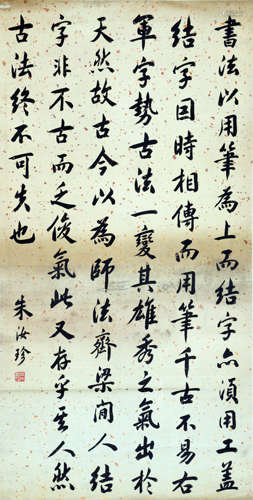 書法以用筆為上而結字亦須用工蓋
結字因時相傳而用筆千古不易右
軍字勢古法一變其雄秀之氣出於
天然故古今以為師法齊梁間人結
字非不古而乏俊氣此又存乎其人然
古法終不可失也
朱汝珍